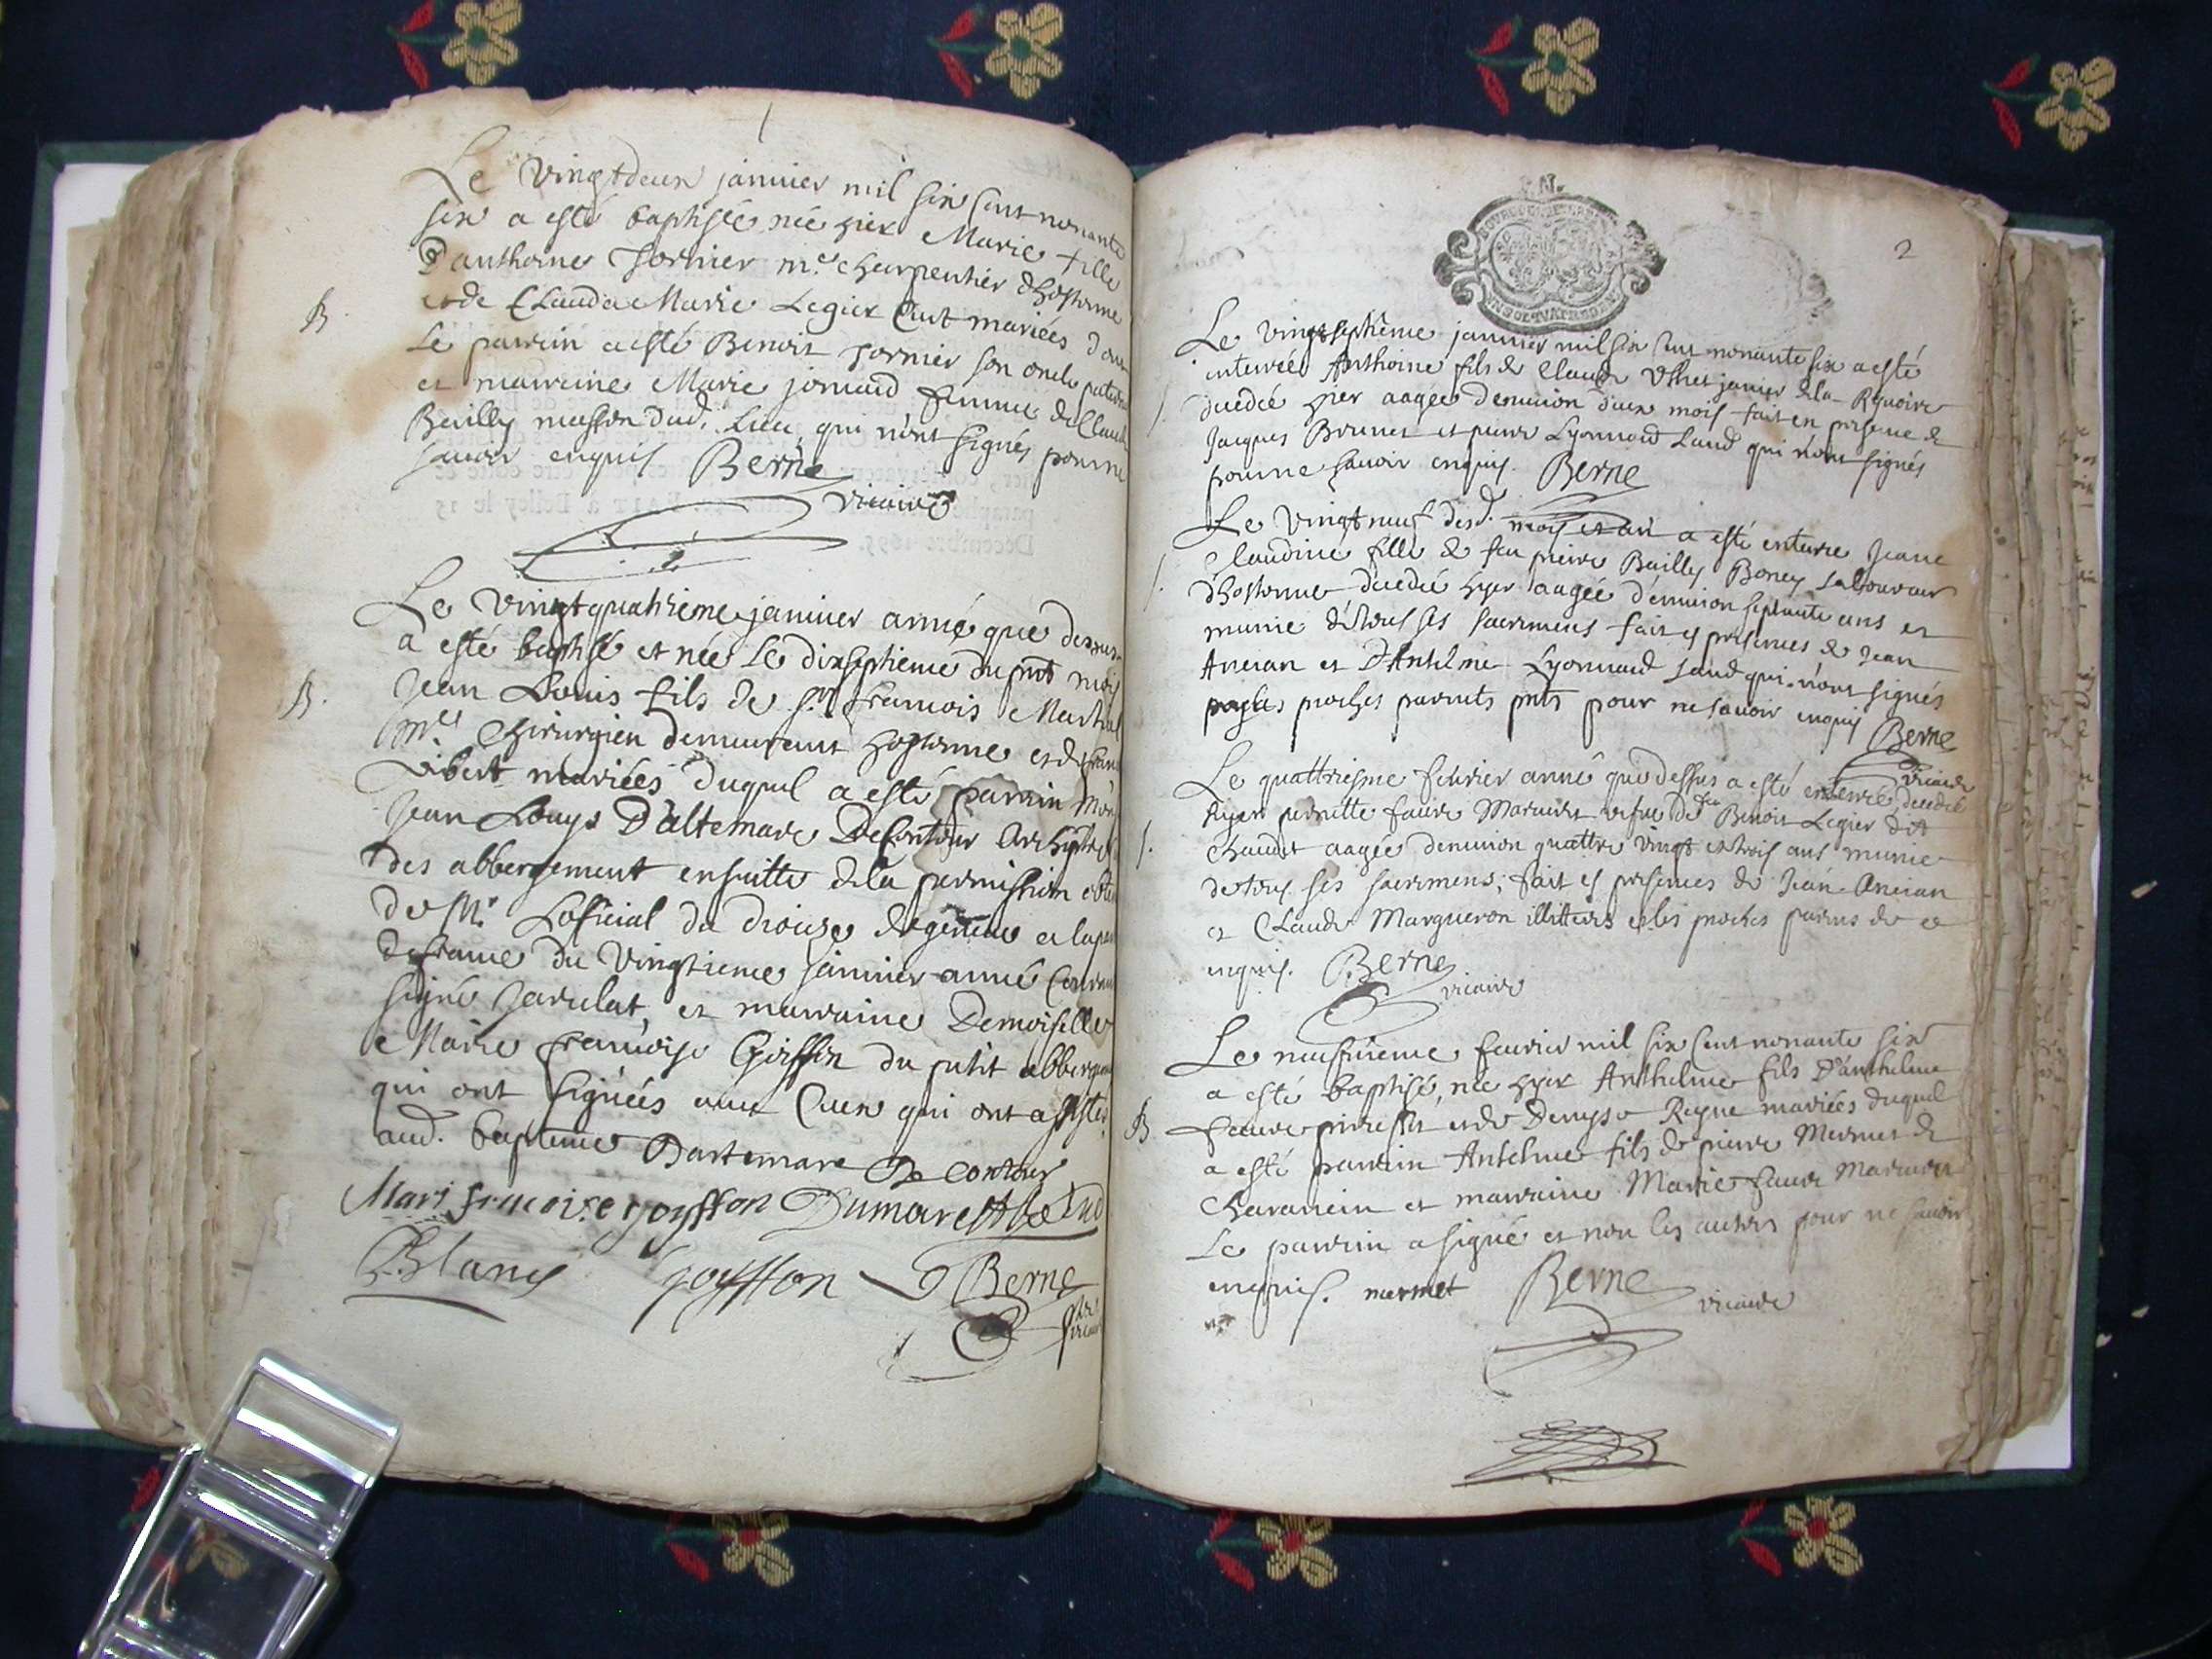 Le vingtdeux janvier mil six cent nonante
six a esté baptisée née hier Marie fille
D'anthoine fornier me charpentier d'hostonne
et de Clauda Marie Legier Cont mariées dont
Le parrin a esté Benoit fornier son oncle paternel
et marraine Marie jomand femme de Claude
Bailly masson dud. Lieu qui n'ont signés pour ne
savoir enquis Berne
vicaire
B
Le vingtquatrieme janvier anné que dessus
a esté baptisé et née Le dixseptieme du pnt mois
Jean Louis fils de sr francois Martial
me Chirurgien demeurant hostonne et de
vibert mariées duquel a esté parrin
Jean Louys D'altemare De Contour
des abbergement ensuitte de la permission
de Mr Lofficial du diocese de geneve
de france du vingtieme janvier anné
signé et marraine Demoiselle
Marie francoise Goiffon du petit
qui ont signées avec Ceux qui ont assistés
aud. bapteme Dartemare De contour
Mari francoise goyffon Dumarest
Blanc goyffon Berne
B.
2
Le vingtseptième janvier mil six cent nonante six a esté
enterrée Anthoine fils de Claude janier de la
decedé hyer aagée d'environ deux mois fait en presence de
Jacques Brunet et pierre Lyonnard Laud qui n'ont signés
pour ne savoir enquis. Berne
Le vingtneuf desd. mois et an a esté enterré Jeane
Claudine fille de feu pierre Bailly Boney Laboureur
d'hostonne decedée hyer aagée d'environ septante ans et
munie de tous ses sacremens fait es presences de Jean
Ancian et d'Antelme Lyonnard Laud qui n'ont signés
proches parents pnts pour ne savoir enquis Berne
vicaire
Le quattriesme febvrier anné que dessus a esté enterré decedé
hyer pernette faure vefve de feu Benoit Legier dit
Chaudet aagée d'environ quattre vingt et trois ans munie
de tous ses sacremens, fait es presences de Jean Ancian
et Claude Margueron illitterés et les proches parens de ce
enquis. Berne
vicaire
Le neufvieme fevrier mil six cent nonante six
a esté baptisé, née hyer Anthelme fils D'anthelme
faure et de Denyse Reyne mariées duquel
B
a esté parrin Antelme fils de pierre Mermet de
Charancin et marraine Marie faure
Le parrin a signé et non les autres pour ne savoir
enquis. mermet Berne
vicaire